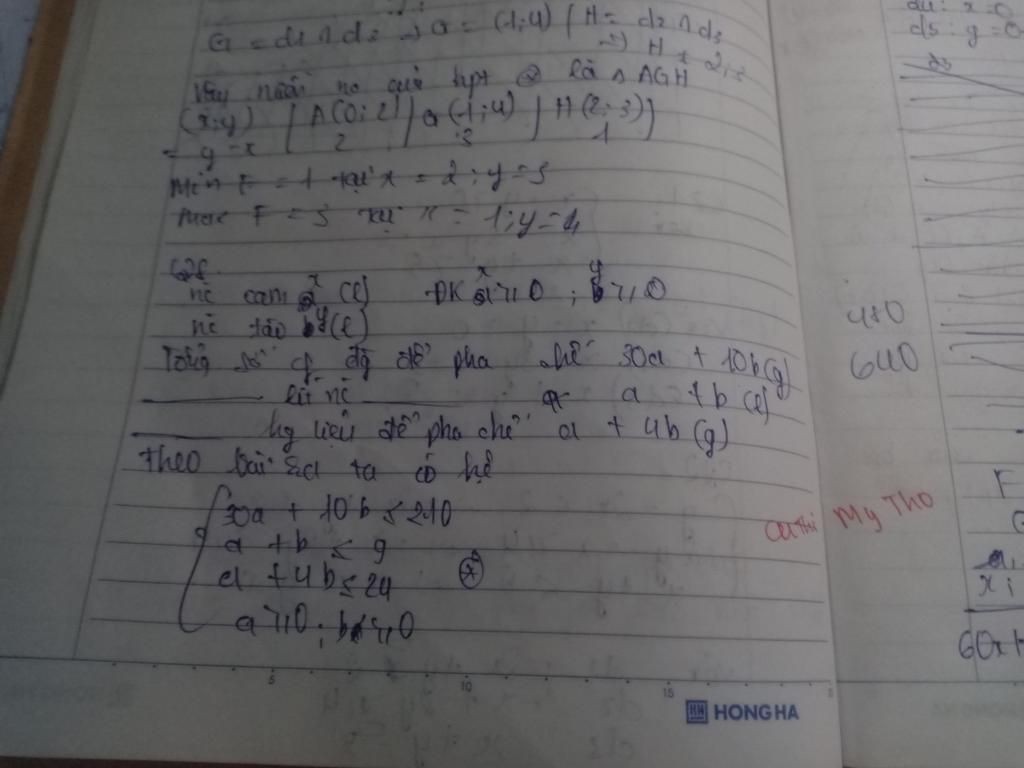 G = d1 ∩ d2 ⇒ G = (1;4) | H = d2 ∩ d3
⇒ H = 2;3
Vậy là Δ AGH
(x;y) | A(0;2) | G(1;4) | H(2;3)
= y-x 2 3 1
Min F = 1 tại x = 2; y = 3
max F = 3 tại x = 1; y = 4
nc cam x (l) ĐK x ≥ 0 ; y ≥ 0
nc táo y (l)
Tổng số để pha chế 30a + 10b (g)
lít nc a + b (l)
hg liệu để pha chế a + 4b (g)
Theo bài ra ta có hệ
30a + 10b ≤ 210
a + b ≤ 9
a + 4b ≤ 24 (*)
a ≥ 0; b ≥ 0
640
Ca Thi Mỹ Tho
d5: y = 0
F
60x+
5 10 15
HH HONG HA